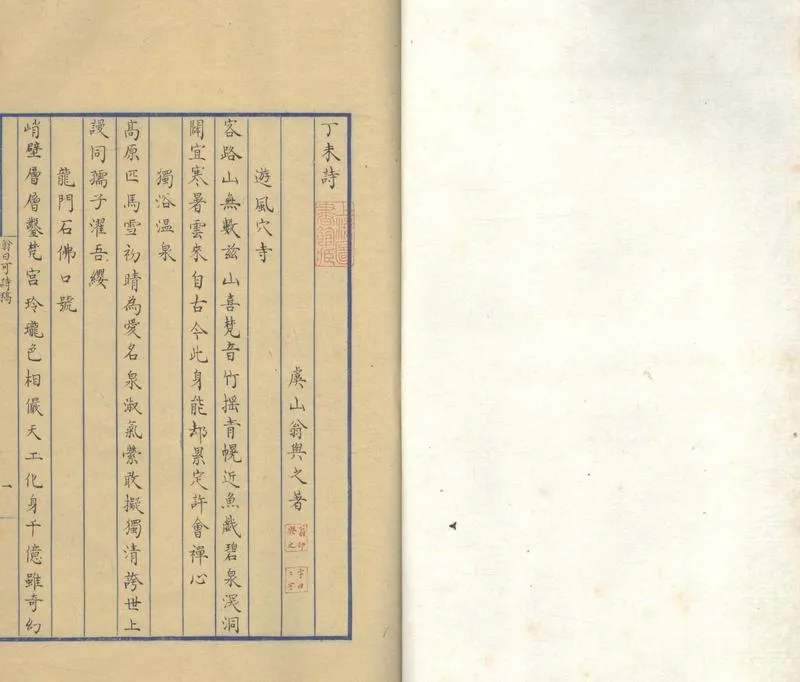 丁未詩
上海圖書館藏
虞山翁與之著
遊風穴寺
客路山無數兹山喜梵音竹搖青幌近魚戲碧泉深洞
關宜寒暑雲來自古今此身能却累定許會禪心
獨浴温泉
高原匹馬雪初晴為愛名泉淑氣縈敢擬獨清誇世上
謾同孺子濯吾纓
龍門石佛口號
峭壁層層鑿梵宮玲瓏色相儼天工化身千億雖奇幻
翁曰可詩稿
一